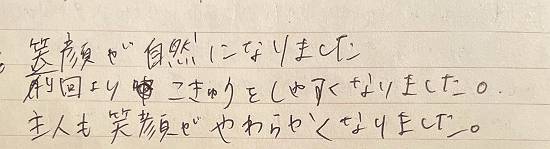 笑顔が自然になりました
前回より こきゅうをしやすくなりました。
主人も笑顔がやわらかくなりました。